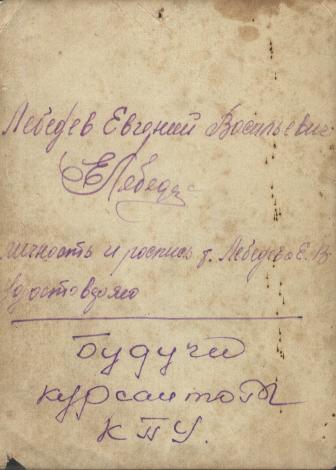 Лебедев Евгений Васильевич
ЕЛебеде
личность и роспись т. Лебедева Е. В.
удостоверяю
Будучи
курсантом
КПУ.